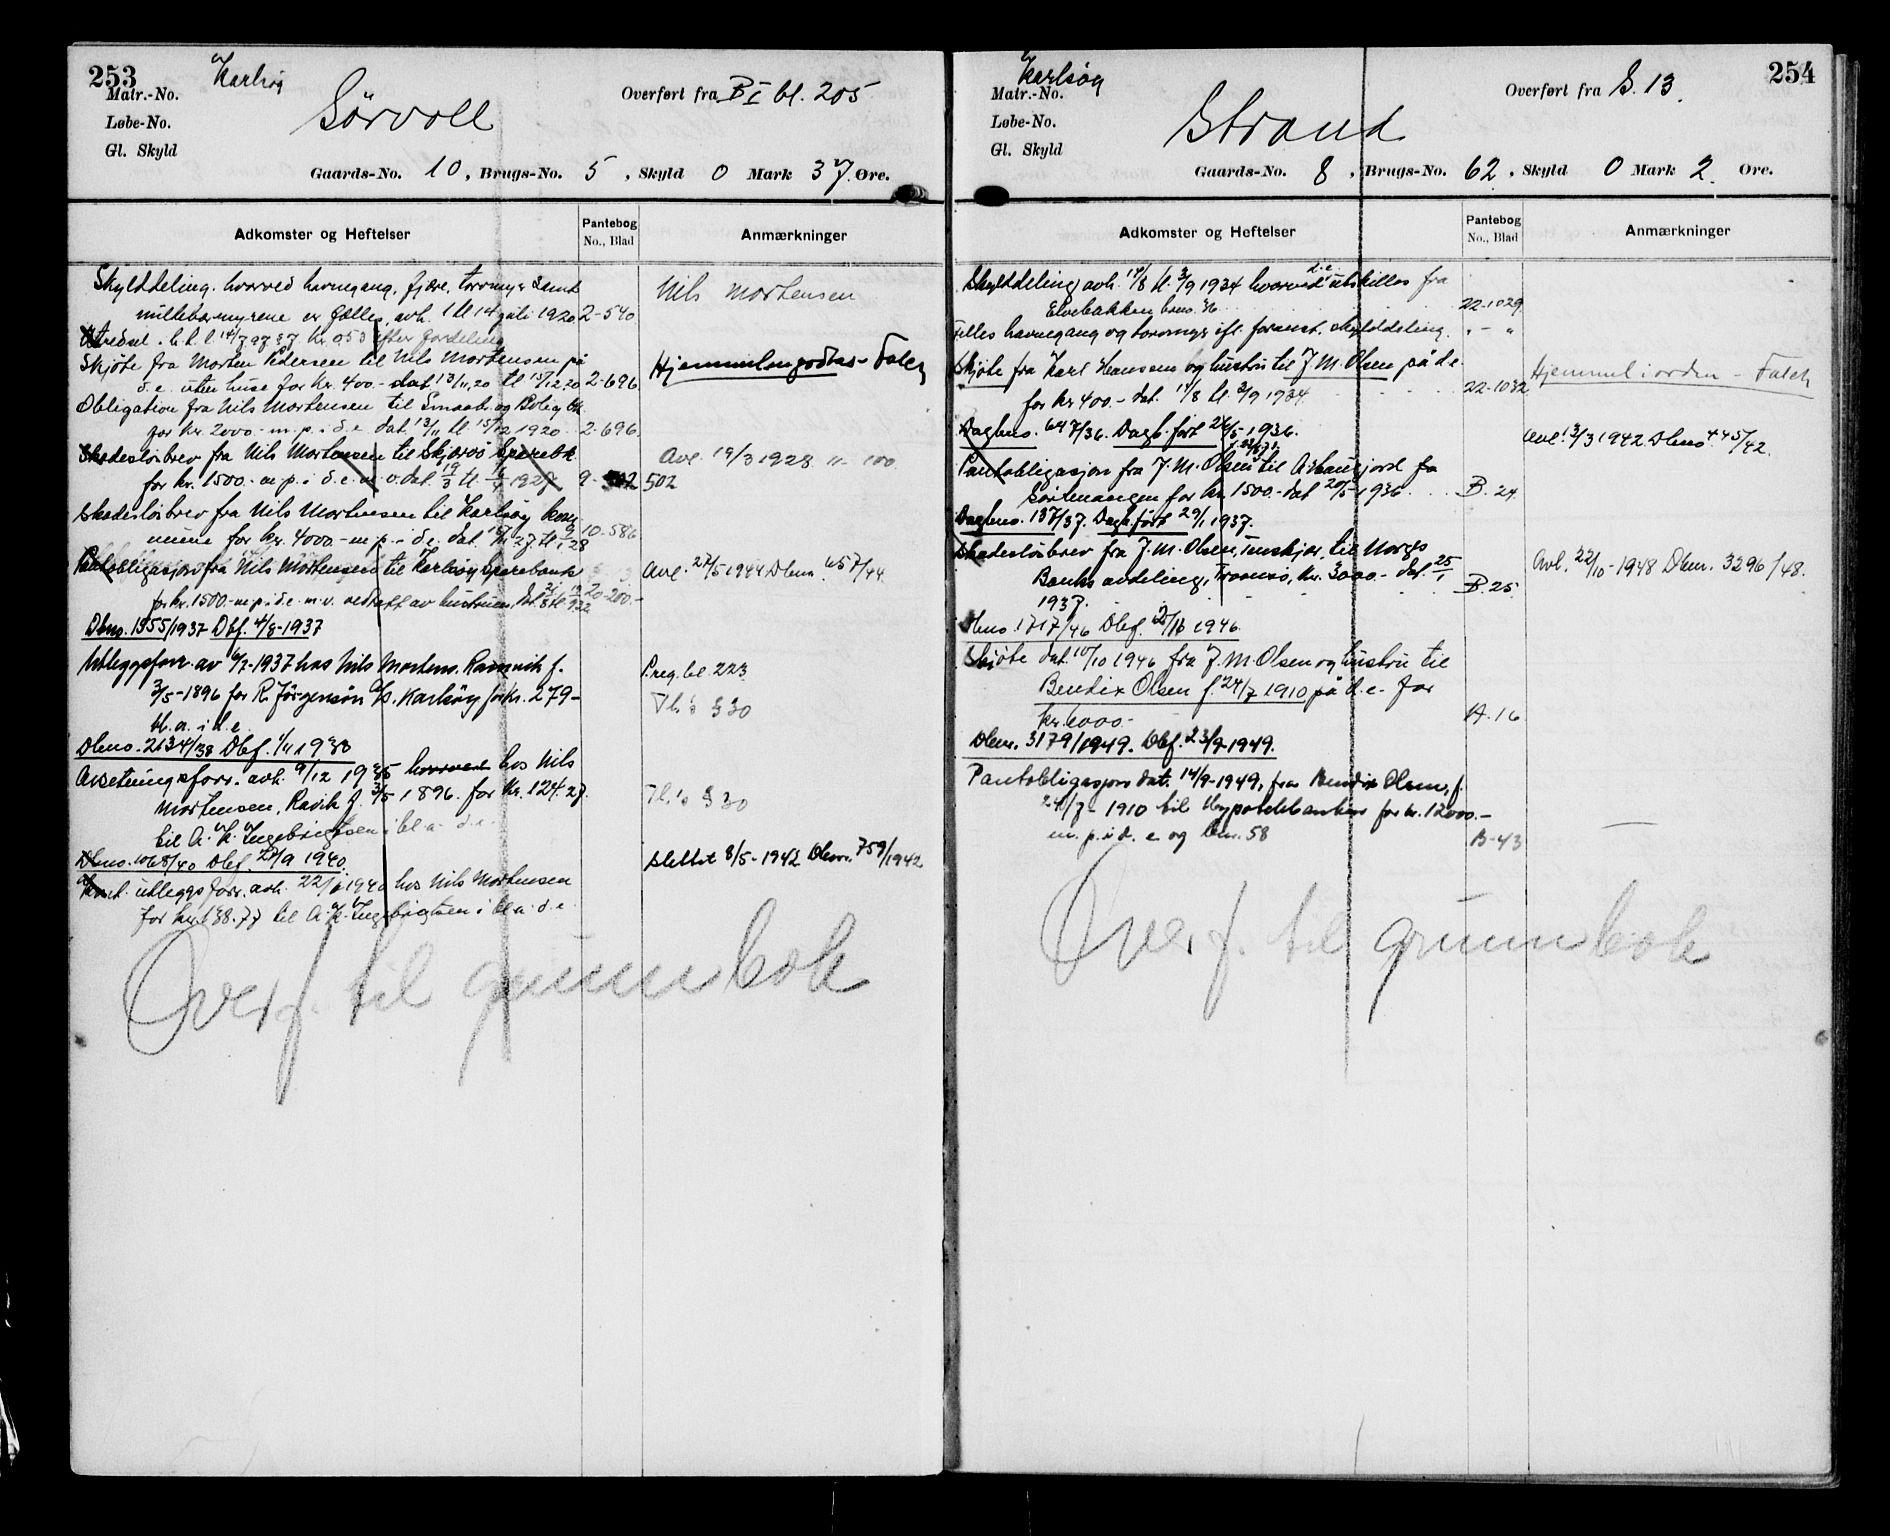 253
Karlsøy
Matr.-No.
Løbe-No.
Gl. Skyld
Sörvoll
Overført fra B I bl. 205
Gaards-No. 10, Brugs-No. 5, Skyld 0 Mark 37 Øre.
Adkomster og Heftelser
Pantebog No., Blad
Anmærkninger
Skylddeling. hvorved havnegang, fjære, torvmyr samt
multebærmyrene er fælles, avh. 1 tl 14 juli 1920 2-540
Nils Mortensen
efter fordeling
Skjöte fra Morten Pedersen til Nils Mortensen på
d.e. uten huse for kr. 400.- dat 13/11 20 tl 15/12 20 2-696
Hjemmelen godtas - Falch
Obligation fra Nils Mortensen til Smaabr. og Bolig bk.
for kr. 2000.- m.p.i d.e. dat 13/11 tl 15/12 1920 2-696.
Skadeslösbrev fra Nils Mortensen til Skjervö Sparebk.
for kr. 1500.- m.p.i d.e. m.v. dat 19/3 tl 1927 9- 502
Avl. 19/3 1928 11-100.
Skadeslösbrev fra Nils Mortensen til Karlsöy kom
mune for kr. 4000.- m.p.i d.e. dat 15/11 27 tl 28 10-586
Pantobligasjon fra Nils Mortensen til Karlsøy Sparebank
for kr. 1500.- m.p.i d.e. m.v. vedtatt av hustruen, 20-200.-
Avl. 27/5 1944 Dbnr. 657/44
Dbno. 1355/1937 Dbf. 4/8-1937
Utleggsforr. av 6/7-1937 hos Nils Mortens. Ramvik f.
3/5-1896 for R. Jörgensön A/S. Karlsöy for kr. 279-
bl. a. i d.e.
P.reg. bl. 223
Tl.'s § 30
Dbno. 2134/38 Dbf. 1/11 1938
Avsetningsforr. avh. 9/12 1935 hos Nils
Mortensen, Ravik f. 3/5 1896. for kr. 124.27.
til A. K. Ingebrigtsen i bl. a. d.e.
Tl.'s § 30
Dbno. 1068/40 Dbf. 27/9 1940.
utleggsforr. avh. 22/6 1940 hos Nils Mortensen
for kr. 138.77 til A. K. Ingebrigtsen i bl. a. d.e.
Slettet 8/5-1942 Dbnr. 759/1942
Overf. til grunnbok
254
Karlsøy
Matr.-No.
Løbe-No.
Gl. Skyld
Strand
Overført fra S. 13.
Gaards-No. 8, Brugs-No. 62, Skyld 0 Mark 2. Øre.
Adkomster og Heftelser
Pantebog No., Blad
Anmærkninger
Skylddeling avh. 14/8 tl. 3/9 1934 hvorved d.e. utskilles fra
Elvebakken brno. 36 22-1029
Felles havnegang og torvmyr ifl. foranst. skylddeling. " - "
Skjöte fra Karl Hansen og hustru til J. M. Olsen på d.e.
for kr 400.- dat. 14/8 tl. 3/9 1934 22-1032
Hjemmel i orden - Falch
Dagbno. 647/36. Dagb. fört 26/5-1936.
Pantobligasjon fra J. M. Olsen til A. Hansjord fa
for kr. 1500.- dat 20/5-1936 B. 24
Avl. 13/3 1942. Dbno. 445/42.
Dagbno. 137/37. Dagb. fört 29/1 1937.
Skadeslösbrev fra J. M. Olsen, til Norges
Banks avdeling, Tromsö, kr. 3000.- dat. 25/1
1937. B. 25
Avl. 22/10-1948 Dbnr. 3296/48.
Dbno. 1717/46 Dbf. 1946.
Skjöte dat. 10/10 1946 fra J. M. Olsen og hustru til
Bendix Olsen f. 24/7 1910 på d.e. for
kr. 6000.- A. 16
Dbnr. 3179/1949. Dbf. 23/9-1949.
Pantobligasjon dat. 14/9-1949, fra Bendix Olsen, f.
24/7-1910 til Hypotekbanken for kr. 12000.-
m.p. i d.e og bnr. 58 B-43
Overf. til grunnbok